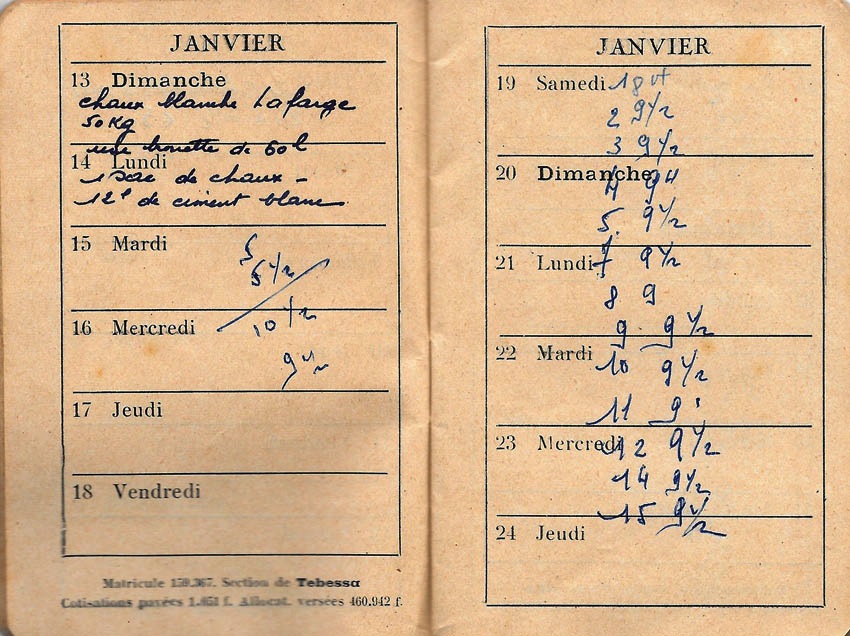 JANVIER
13 Dimanche
chaux blanche Lafarge
50 Kg
une brouette de 60 l
14 Lundi
1 sac de chaux -
12 l de ciment blanc
15 Mardi
5
5 1/2
16 Mercredi
10 1/2
9 1/2
17 Jeudi
18 Vendredi
Matricule 159.367. Section de Tebessa
Cotisations payées f. Allocat. versées 460.942 f.
JANVIER
19 Samedi 1 8
2 9 1/2
3 9 1/2
20 Dimanche
4 9
5. 9 1/2
21 Lundi 7 9 1/2
8 9
9 9 1/2
22 Mardi 10 9 1/2
11 9
23 Mercredi 12 9 1/2
14 9 1/2
15 9 1/2
24 Jeudi